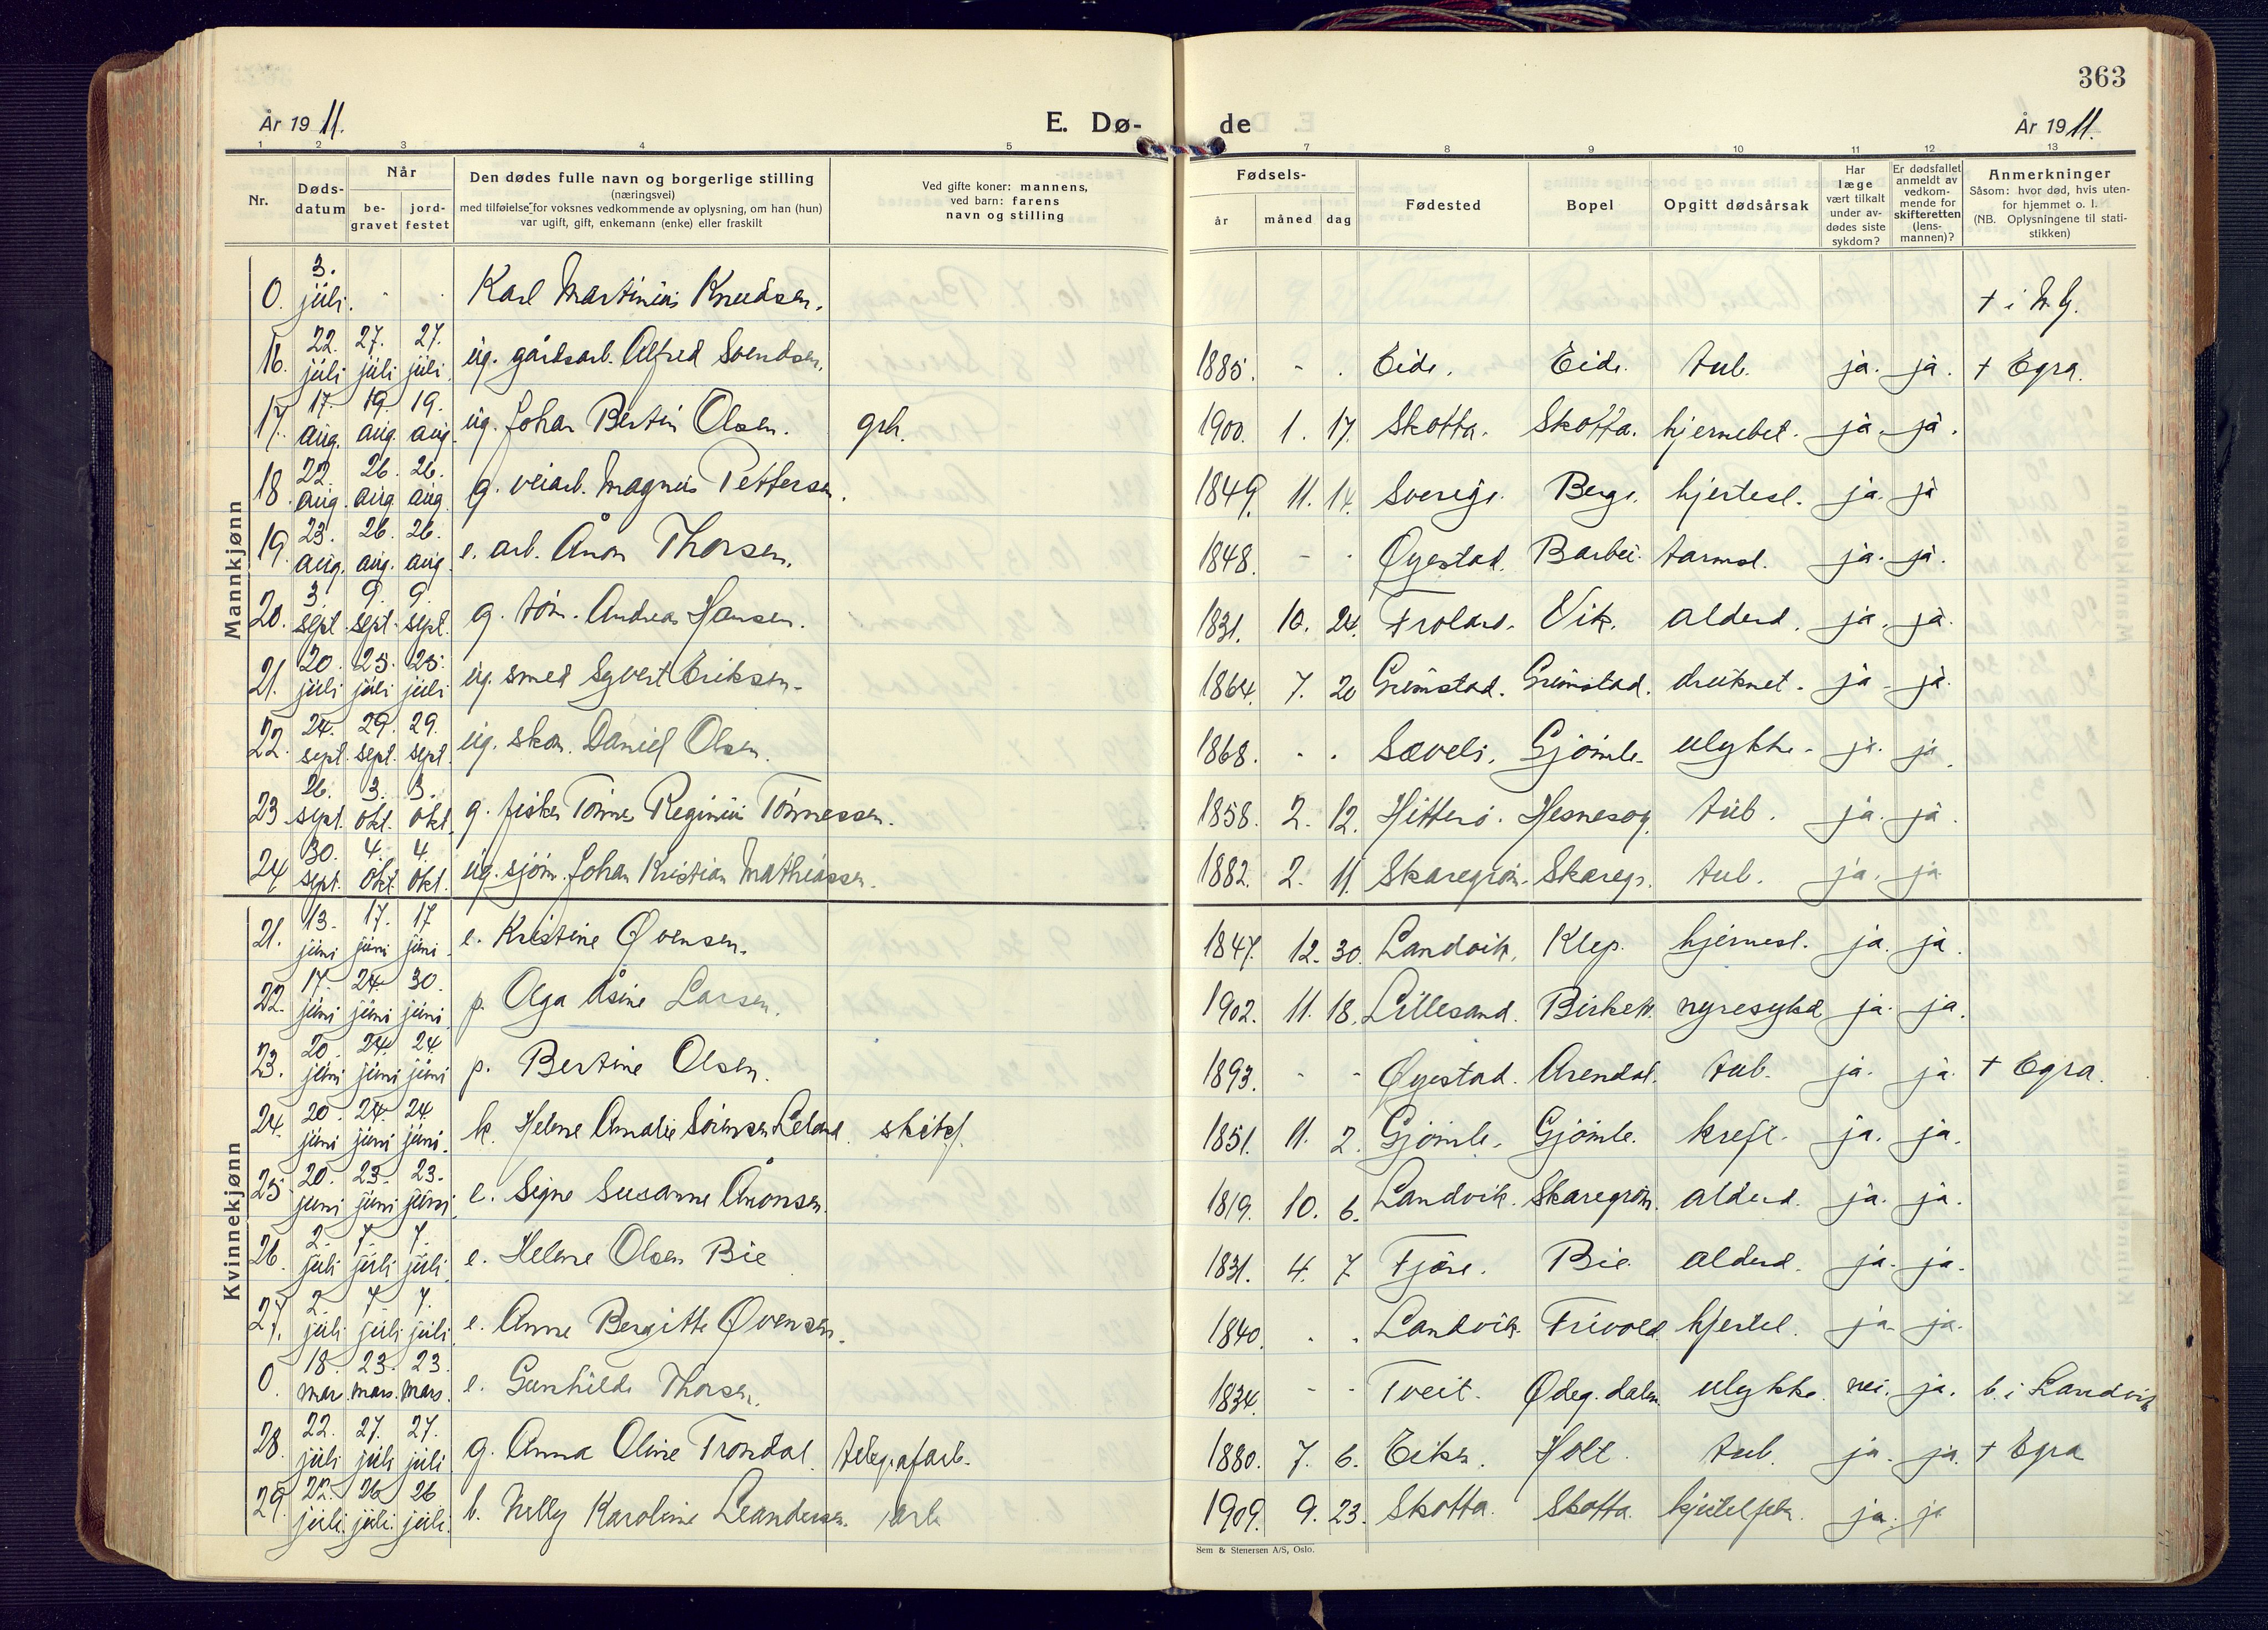 363
År 1911.
E. Dø-
de
År 1911.
1 2 3 4 5 7 8 9 10 11 12 13
Nr.
Døds-
datum
Når
be-
gravet
jord-
festet
Den dødes fulle navn og borgerlige stilling
(næringsvei)
med tilføielse for voksnes vedkommende av oplysning, om han (hun)
var ugift, gift, enkemann (enke) eller fraskilt
Ved gifte koner: mannens,
ved barn: farens
navn og stilling
Fødsels-
år måned dag
Fødested
Bopel
Opgitt dødsårsak
Har
læge
vært tilkalt
under av-
dødes siste
sykdom?
Er dødsfallet
anmeldt av
vedkom-
mende for
skifteretten
(lens-
mannen)?
Anmerkninger
Såsom: hvor død, hvis uten-
for hjemmet o. l.
(NB. Oplysningene til stati-
stikken)
Mannkjønn
0. 3. juli. Karl Martinius Knudsen. † i
16. 22. juli 27. juli 27. juli ug. gårdsarb. Alfred Svendsen. 1885. - . Eide. Eide. tub. ja. ja. † Egra.
17. 17. aug. 19. aug. 19. aug. ug. Johan Bertin Olsen. grb. 1900. 1. 17. Skotta. Skotta. hjernebet. ja. ja.
18. 22. aug. 26. aug. 26. aug g. veiarb. Magnus Pettersen. 1849. 11. 14. Sverige. Berge. hjertesl. ja. ja
19. 23. aug. 26. aug. 26. aug. e. arb. Ånon Thorsen. 1848. - . Øyestad. Barbu. tarmsl. ja. ja.
20. 3. sept. 9. sept. 9. sept. g. tøm. Andreas Hansen. 1831. 10. 24. Froland. Vik. alderd. ja. ja.
21. 20. juli 25. juli 25. juli ug. smed Syvert Eriksen. 1864. 7. 20 Grimstad. Grimstad. druknet. ja. ja.
22. 24. sept. 29. sept. 29. sept ug. skom. Daniel Olsen. 1868. - . Sæveli. Gjømle. ulykke. ja. ja.
23 26. sept. 3. okt. 3. okt. g. fisker Tønnes Reginius Tønnessen. 1858. 2. 12. Hitterø. Hesnesøy. tub. ja. ja.
24 30. sept. 4. okt. 4. okt. ug. sjøm. Johan Kristian Mathiassen. 1882. 2. 11. Skaregrøm. Skaregr. tub. ja. ja.
Kvinnekjønn
21. 13. juni 17. juni 17 juni. e. Kristine Øvensen. 1847. 12. 30. Landvik. Klep. hjernesl. ja. ja.
22. 17. juni 24. juni 30. juni. p. Olga Åsine Larsen. 1902. 11. 18. Lillesand. Birket. nyresykd ja. ja.
23. 20. juni 24. juni 24. juni p. Bertine Olsen. 1893. - - Øyestad. Arendal. tub. ja. ja † Egra.
24. 20. juni 24. juni 24. juni. k. Helene Amalie Sørensen Leland. skibsf. 1851. 11. 2. Gjømle. Gjømle. kreft. ja. ja.
25 20. juni 23. juni 23. juni. e. Signe Susanne Ånonsen. 1819. 10. 6. Landvik. Skaregrøm. alderd. ja. ja.
26. 2. juli 7. juli 7. juli. e. Helene Olsen Bie 1831. 4. 7 Fjære. Bie. alderd. ja. ja.
27. 2. juli 7. juli 7. juli e. Anne Bergitte Øvensen. 1840. . . Landvik. Frivold hjertel. ja. ja.
0. 18. mar. 23. mars. 23. mars. e. Gunhilde Thorsen. 1834. - - Tveit. Ødeg. dalen. ulykke. nei. ja. b. i Landvik
28. 22. juli 27. juli 27. juli g. Anna Oline Trondal. telegrafarb. 1880. 7. 6. Eiken. Holt. tub. ja. ja. † Egra
29. 22. juli. 26 juli. 26 juli. b. Nelly Karoline Leandersen. arb. 1909. 9. 23. Skotta. Skotta. hjertelfeber. ja. ja
Sem & Stenersen A/S, Oslo.